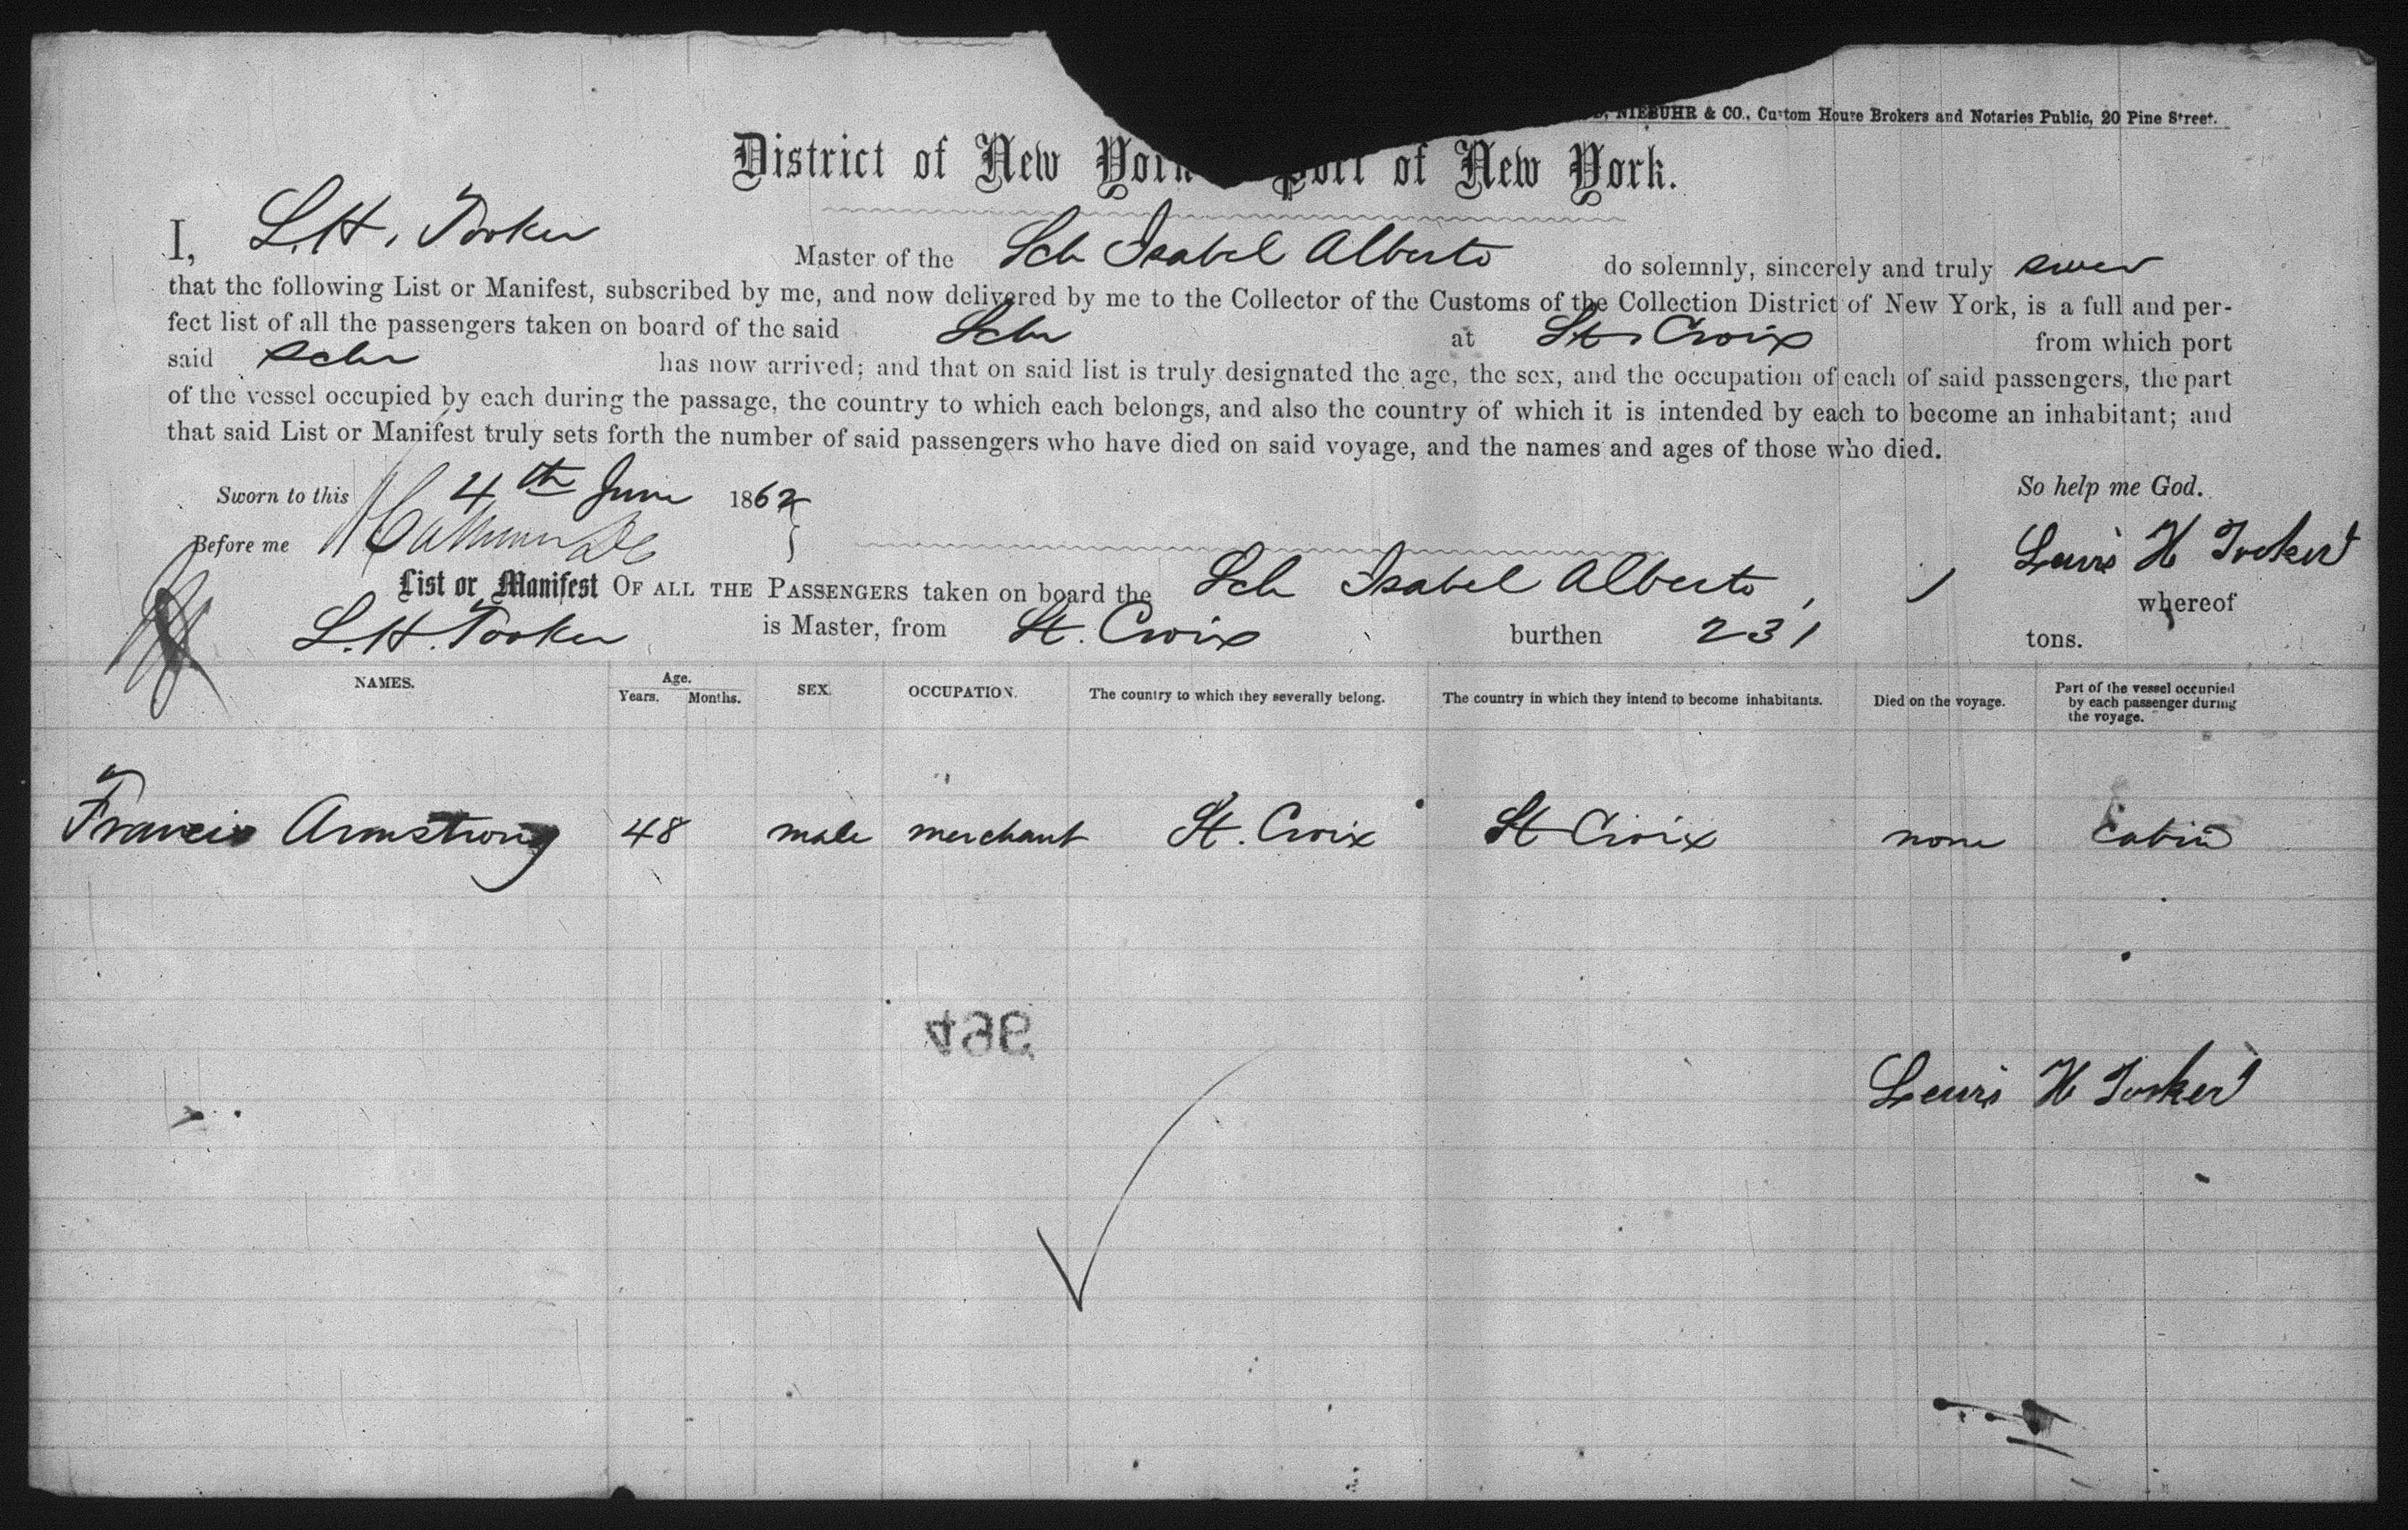 NIEBUHR & CO., Custom House Brokers and Notaries Public, 20 Pine Street.
District of New York Port of New York.
I, L. H. Tooker Master of the Sch Isabel Alberto do solemnly, sincerely and truly swear
that the following List or Manifest, subscribed by me, and now delivered by me to the Collector of the Customs of the Collection District of New York, is a full and per-
fect list of all the passengers taken on board of the said Schr at St. Croix from which port
said schr has now arrived; and that on said list is truly designated the age, the sex, and the occupation of each of said passengers, the part
of the vessel occupied by each during the passage, the country to which each belongs, and also the country of which it is intended by each to become an inhabitant; and
that said List or Manifest truly sets forth the number of said passengers who have died on said voyage, and the names and ages of those who died.
Sworn to this 4th June 1862 So help me God.
Before me Lewis H Tooker
List or Manifest OF ALL THE PASSENGERS taken on board the Sch Isabel Alberto, whereof
L. H. Tooker is Master, from St. Croix burthen 231 tons.
NAMES. Age. Years. Months. SEX. OCCUPATION. The country to which they severally belong. The country in which they intend to become inhabitants. Died on the voyage. Part of the vessel occupied by each passenger during the voyage.
Francis Armstrong 48 male merchant St. Croix St Croix none cabin
Lewis H Tooker